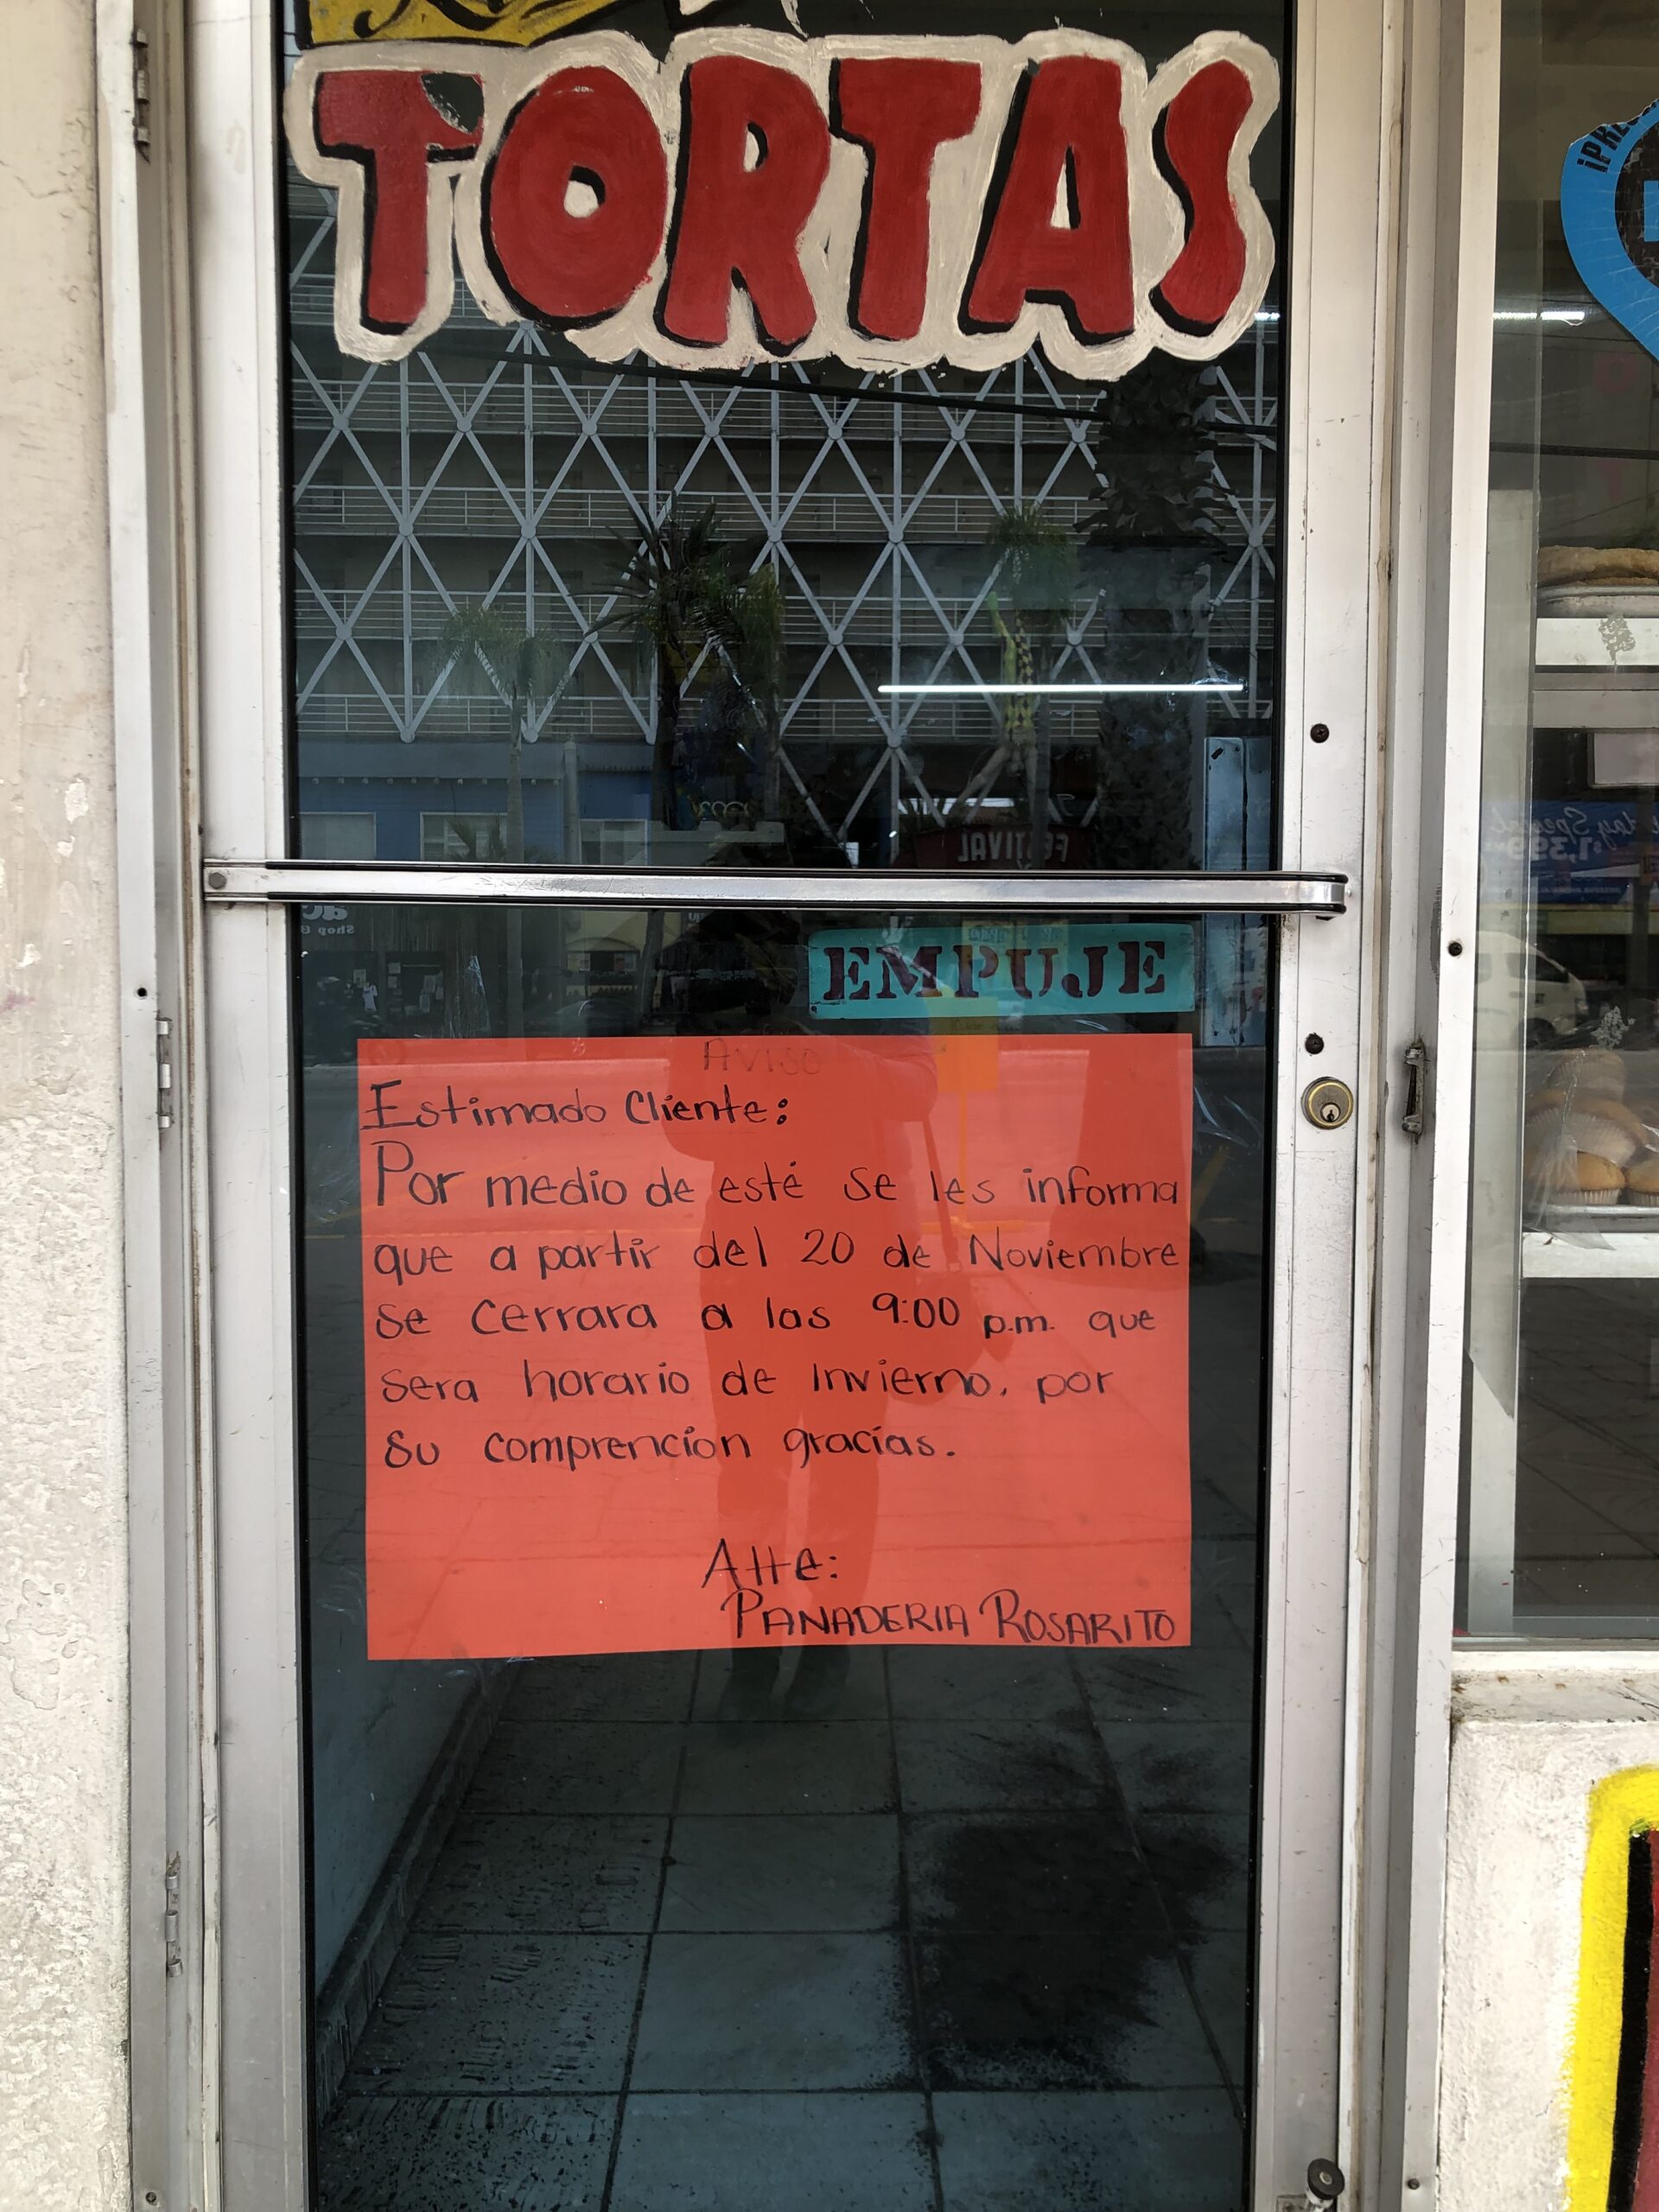 TORTAS
FESTIVAL
EMPUJE
Aviso
Estimado Cliente:
Por medio de esté se les informa
que a partir del 20 de Noviembre
se cerrara a las 9:00 p.m. que
sera horario de Invierno. por
su comprencion gracias.
Atte:
PANADERIA ROSARITO